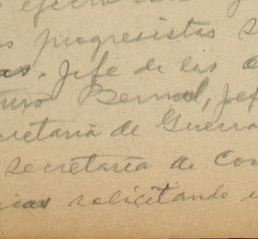 efecto
os progresistas s
as. Jefe de las
turo Bernal, jef
cretaría de Guerra
secretaría de Com
icas solicitando